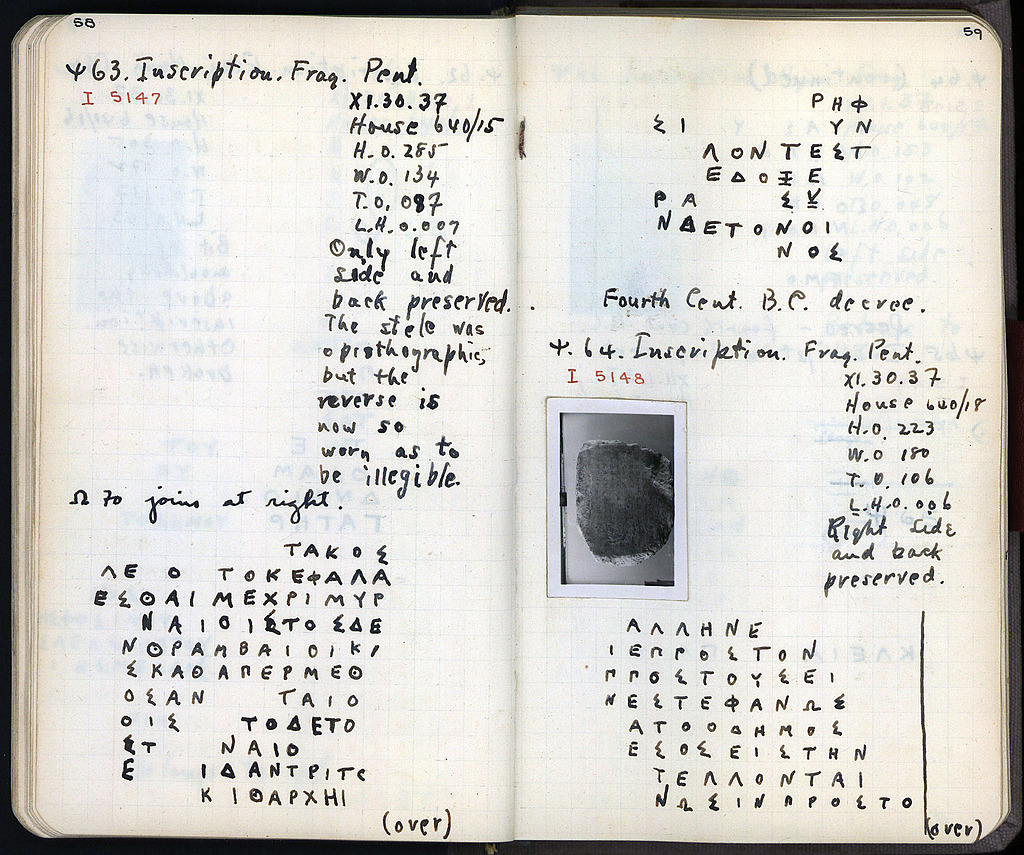 58
Ψ 63. Inscription. Frag. Pent.
I 5147
XI.30.37
House 640/15
H.0.285
W.0.134
T.0.087
L.H.0.007
Only left
side and
back preserved.
The stele was
opisthographic,
but the
reverse is
now so
worn as to
be illegible.
Ω 70 joins at right.
ΤΑΚΟΣ
ΛΕ Ο ΤΟΚΕΦΑΛΑ
ΕΣΘΑΙΜΕΧΡΙΜΥΡ
ΝΑΙΟΙΣΤΟΣΔΕ
ΝΘΡΑΜΒΑΙΟΙΚΙ
ΣΚΑΘΑΠΕΡΜΕΘ
ΟΣΑΝ ΤΑΙΟ
ΟΙΣ ΤΟΔΕΤΟ
ΣΤ ΝΑΙΟ
Ε ΙΔΑΝΤΡΙΤΣ
ΚΙΘΑΡΧΗΙ
(over)
59
ΡΗΦ
ΣΙ ΥΝ
ΛΟΝΤΕΣΤ
ΕΔΟΞΕ
ΡΑ ΣΥ
ΝΔΕΤΟΝΟΙ
ΝΟΣ
Fourth Cent. B.C. decree.
Ψ. 64. Inscription. Frag. Pent.
I 5148
XI.30.37
House 640/18
H.0.223
W.0.180
T.0.106
L.H.0.006
Right side
and back
preserved.
ΑΛΛΗΝΕ
ΙΕΠΡΟΣΤΟΝ
ΠΡΟΣΤΟΥΣΕΙ
ΝΕΣΤΕΦΑΝΩΣ
ΑΤΟΟΔΗΜΟΣ
ΕΣΟΣΕΙΣΤΗΝ
ΤΕΛΛΟΝΤΑΙ
ΝΩΣΙΝΠΡΟΣΤΟ
(over)